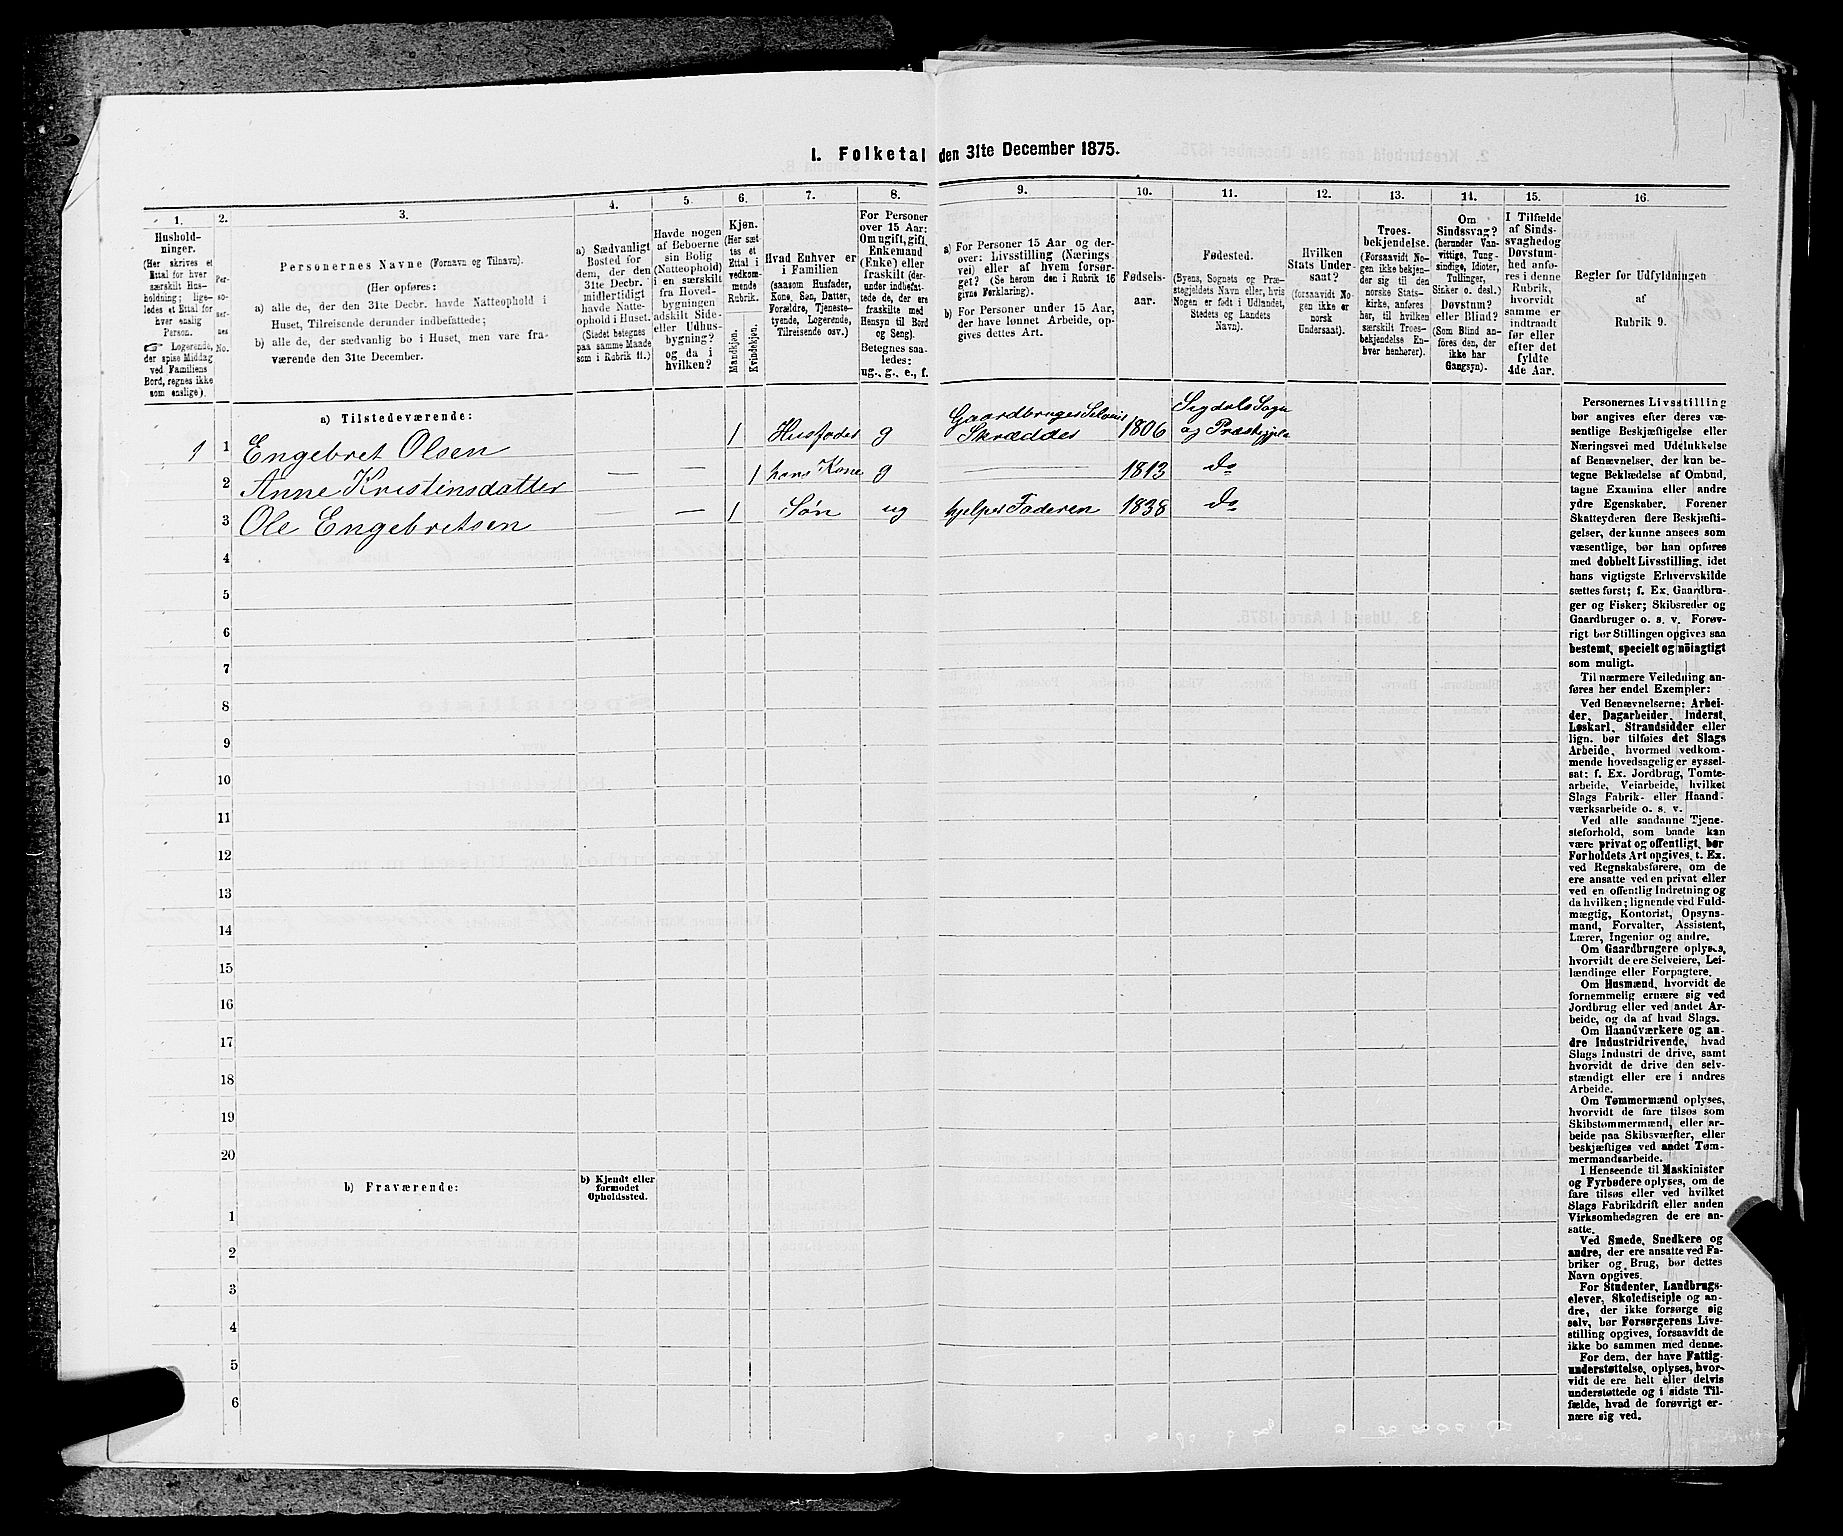 1. Folketal den 31te December 1875.
1.
Hushold-
ninger.
(Her skrives et
Ettal for hver
særskilt Hus-
holdning; lige-
ledes et Ettal for
hver enslig
Person.
Logerende,
der spise Middag
ved Familiens
Bord, regnes ikke
som enslige).
2.
Per-
so-
ner-
nes
No.
3.
Personernes Navne (Fornavn og Tilnavn).
(Her opføres:
a) alle de, der den 31te Decbr. havde Natteophold i
Huset, Tilreisende derunder indbefattede;
b) alle de, der sædvanlig bo i Huset, men vare fra-
værende den 31te December.
4.
a) Sædvanligt
Bosted for
dem, der den
31te Decbr.
midlertidigt
havde Natte-
ophold i Huset.
(Stedet betegnes
paa samme Maade
som i Rubrik 11.)
5.
Havde nogen
af Beboerne
sin Bolig
(Natteophold)
i en særskilt
fra Hoved-
bygningen
adskilt Side-
eller Udhus-
bygning?
og da i
hvilken?
6.
Kjøn.
(Her sæt-
tes et
Ettal i
vedkom-
mende
Rubrik.
Mandkjøn.
Kvindekjøn.
7.
Hvad Enhver er
i Familien
(saasom Husfader,
Kone, Søn, Datter,
Forældre, Tjeneste-
tyende, Logerende,
Tilreisende osv.)
8.
For Personer
over 15 Aar:
Om ugift, gift,
Enkemand
(Enke) eller
fraskilt (der-
under indbefat-
tede de, der ere
fraskilte med
Hensyn til Bord
og Seng).
Betegnes saa-
ledes:
ug., g., e., f.
9.
a) For Personer 15 Aar og der-
over: Livsstilling (Nærings-
vei) eller af hvem forsør-
get? (Se herom den i Rubrik 16
givne Forklaring).
b) For Personer under 15 Aar,
der have lønnet Arbeide, op-
gives dettes Art.
10.
Fødsels-
aar.
11.
Fødested.
(Byens, Sognets og Præ-
stegjeldets Navn eller, hvis
Nogen er født i Udlandet,
Stedets og Landets
Navn).
12.
Hvilken
Stats Under-
saat?
(forsaavidt No-
gen ikke er
norsk
Undersaat).
13.
Troes-
bekjendelse.
(Forsaavidt No-
gen ikke bekjen-
der sig til den
norske Stats-
kirke, anføres
her, til hvilken
særskilt Troes-
bekjendelse En-
hver henhører).
14.
Om
Sindssvag?
(herunder Van-
vittige, Tung-
sindige, Idioter,
Tullinger,
Sinker o. desl.)
Døvstum?
eller Blind?
(Som Blind an-
føres den, der
ikke har
Gangsyn).
15.
I Tilfælde
af Sinds-
svaghed og
Døvstum-
hed anfø-
res i denne
Rubrik,
hvorvidt
samme er
indtraadt
før eller
efter det
fyldte
4de Aar.
16.
Regler for Udfyldningen
af
Rubrik 9.
a) Tilstedeværende:
1 1 Engebret Olsen 1 Husfader g Gaardbruger Selveier Skrædder 1806 Sigdals Sogn og Præstegjeld
2 Anne Kristinsdatter — — 1 hans Kone g — 1813 do
3 Ole Engebretsen — — 1 Søn ug hjelper Faderen 1838 do
4
5
6
7
8
9
10
11
12
13
14
15
16
17
18
19
20
b) Fraværende:
b) Kjendt eller
formodet
Opholdssted.
1
2
3
4
5
6
Personernes Livsstilling
bør angives efter deres væ-
sentlige Beskjæftigelse eller
Næringsvei med Udelukkelse
af Benævnelser, der kun be-
tegne Beklædelse af Ombud,
tagne Examina eller andre
ydre Egenskaber. Forener
Skatteyderen flere Beskjæfti-
gelser, der kunne ansees som
væsentlige, bør han opføres
med dobbelt Livsstilling, idet
hans vigtigste Erhvervskilde
sættes først; f. Ex. Gaardbru-
ger og Fisker; Skibsreder og
Gaardbruger o. s. v. Forøv-
rigt bør Stillingen opgives saa
bestemt, specielt og nøiagtigt
som muligt.
Til nærmere Veiledning an-
føres her endel Exempler:
Ved Benævnelserne: Arbei-
der, Dagarbeider, Inderst,
Løskarl, Strandsidder eller
lign. bør tilføies det Slags
Arbeide, hvormed vedkom-
mende hovedsagelig er syssel-
sat: f. Ex. Jordbrug, Tomte-
arbeide, Veiarbeide, hvilket
Slags Fabrik- eller Haand-
værksarbeide o. s. v.
Ved alle saadanne Tjene-
steforhold, som baade kan
være privat og offentligt, bør
Forholdets Art opgives, t. Ex.
ved Regnskabsførere, om de
ere ansatte ved en privat eller
ved en offentlig Indretning og
da hvilken; lignende ved Fuld-
mægtig, Kontorist, Opsyns-
mand, Forvalter, Assistent,
Lærer, Ingeniør og andre.
Om Gaardbrugere oplyses,
hvorvidt de ere Selveiere, Lei-
lændinge eller Forpagtere.
Om Husmænd, hvorvidt de
fornemmelig ernære sig ved
Jordbrug eller ved andet Ar-
beide, og da af hvad Slags.
Om Haandværkere og an-
dre Industridrivende, hvad
Slags Industri de drive, samt
hvorvidt de drive den selv-
stændigt eller ere i andres
Arbeide.
Om Tømmermænd oplyses,
hvorvidt de fare tilsøs som
Skibstømmermænd, eller ar-
beide paa Skibsværfter, eller
beskjæftiges ved andet Tøm-
mermandsarbeide.
I Henseende til Maskinister
og Fyrbødere oplyses, om de
fare tilsøs eller ved hvilket
Slags Fabrikdrift eller anden
Virksomhedsgren de ere an-
satte.
Ved Smede, Snedkere og
andre, der ere ansatte ved Fa-
briker og Brug, bør dettes
Navn opgives.
For Studenter, Landbrugs-
elever, Skoledisciple og an-
dre, der ikke forsørge sig
selv, bør Forsørgerens Livs-
stilling opgives, forsaavidt de
ikke bo sammen med denne.
For dem, der have Fattig-
understøttelse, oplyses, hvor-
vidt de ere helt eller delvis
understøttede og i sidste Til-
fælde, hvad de forøvrigt er-
nære sig ved.